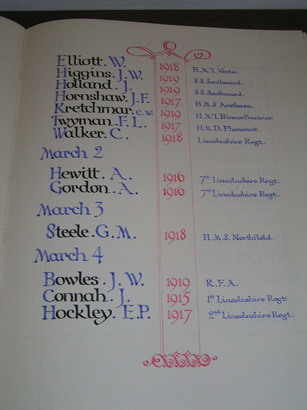 Elliott. W. 1918 H.M.T. Verte.
Higgins. J.W. 1919 S.S. Southward.
Holland. J. 1919 S.S. Southward.
Hornshaw. J.F. 1917 H.M.S.
Kretchmar. C.W. 1919 H.M.T. Princess Beatrice
Twyman. F.L. 1917 H.M.D. Pleasant.
Walker. C. 1918 Lincolnshire Regt.
March 2
Hewitt. A. 1916 7th Lincolnshire Regt.
Gordon. A. 1916 7th Lincolnshire Regt.
March 3
Steele. G.M. 1918 H.M.S. Northfield.
March 4
Bowles. J.W. 1919 R.F.A.
Connah. J. 1915 1st Lincolnshire Regt.
Hockley. E.P. 1917 2nd Lincolnshire Regt.